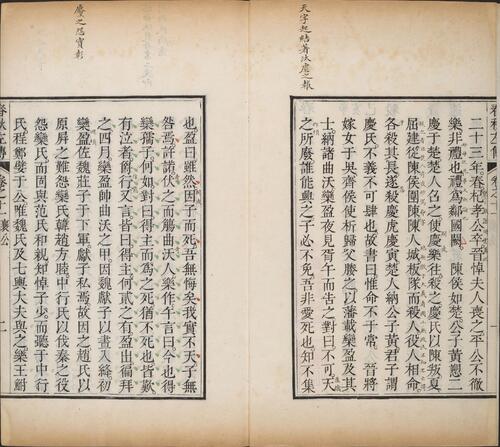 天字起結著汰慶之報
二十三年春杞孝公卒晉悼夫人喪之平公不徹
樂非禮也禮爲鄰國闕　陳侯如楚公子黃愬二
慶于楚楚人召之使慶樂往殺之慶氏以陳叛夏
屈建從陳侯圍陳陳人城板隊而殺人役人相命
各殺其長遂殺慶虎慶寅楚人納公子黃君子謂
慶氏不義不可肆也故書曰惟命不于常　晉將
嫁女于吳齊侯使析歸父媵之以藩載欒盈及其
士納諸曲沃欒盈夜見胥午而告之對曰不可天
之所廢誰能興之子必不免吾非愛死也知不集
也盈曰雖然因子而死吾無悔矣我實不天子無
咎焉許諾伏之而觴曲沃人樂作午言曰今也得
欒孺子何如對曰得主而爲之死猶不死也皆歎
有泣者爵行又言皆曰得主何貳之有盈出徧拜
之四月欒盈帥曲沃之甲因魏獻子以晝入絳初
欒盈佐魏莊子于下軍獻子私焉故因之趙氏以
原屏之難怨欒氏韓趙方睦中行氏以伐秦之役
怨欒氏而固與范氏和親知悼子少而聽于中行
氏程鄭嬖于公唯魏氏及七輿大夫與之樂王鮒
春秋左傳　卷之十一　襄公　二